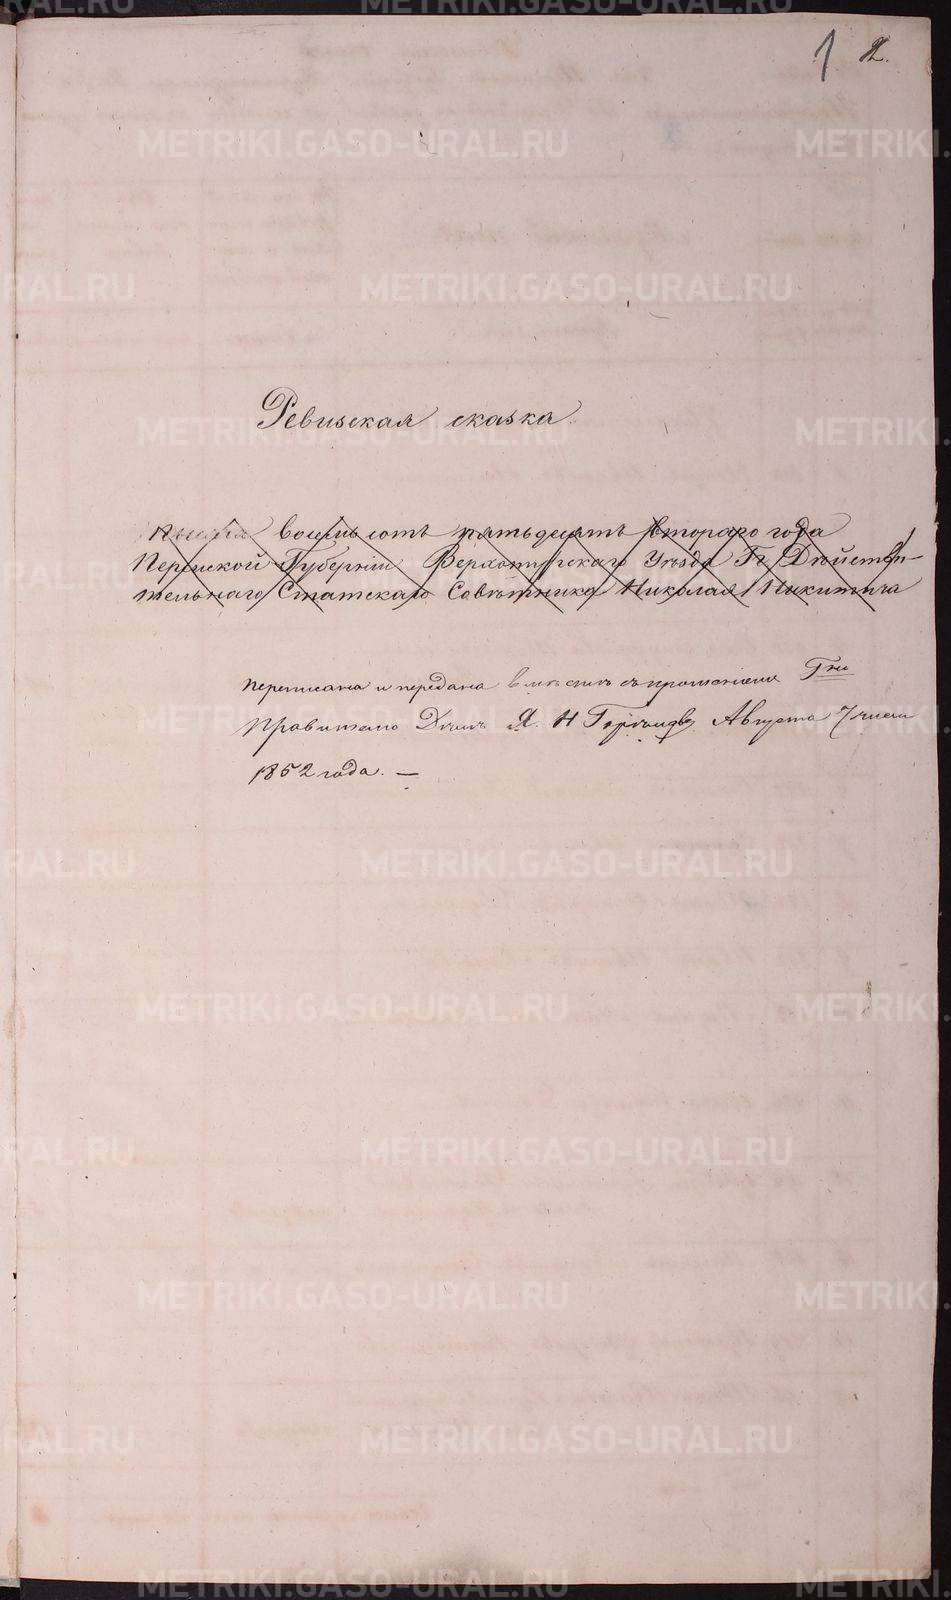 1 2.
Ревизская сказка.
тысяча восемь сотъ пятьдесятъ втораго года
Пермской Губерніи Верхотурскаго Уѣзда Гг Дѣйстви-
тельнаго Статскаго Совѣтника Николая Никитича
переписана и передана вмѣстѣ съ прошеніемъ Гну
Правителю Дѣлъ Я. Н Августа 7 числа
1852 года. —
METRIKI.GASO-URAL.RU